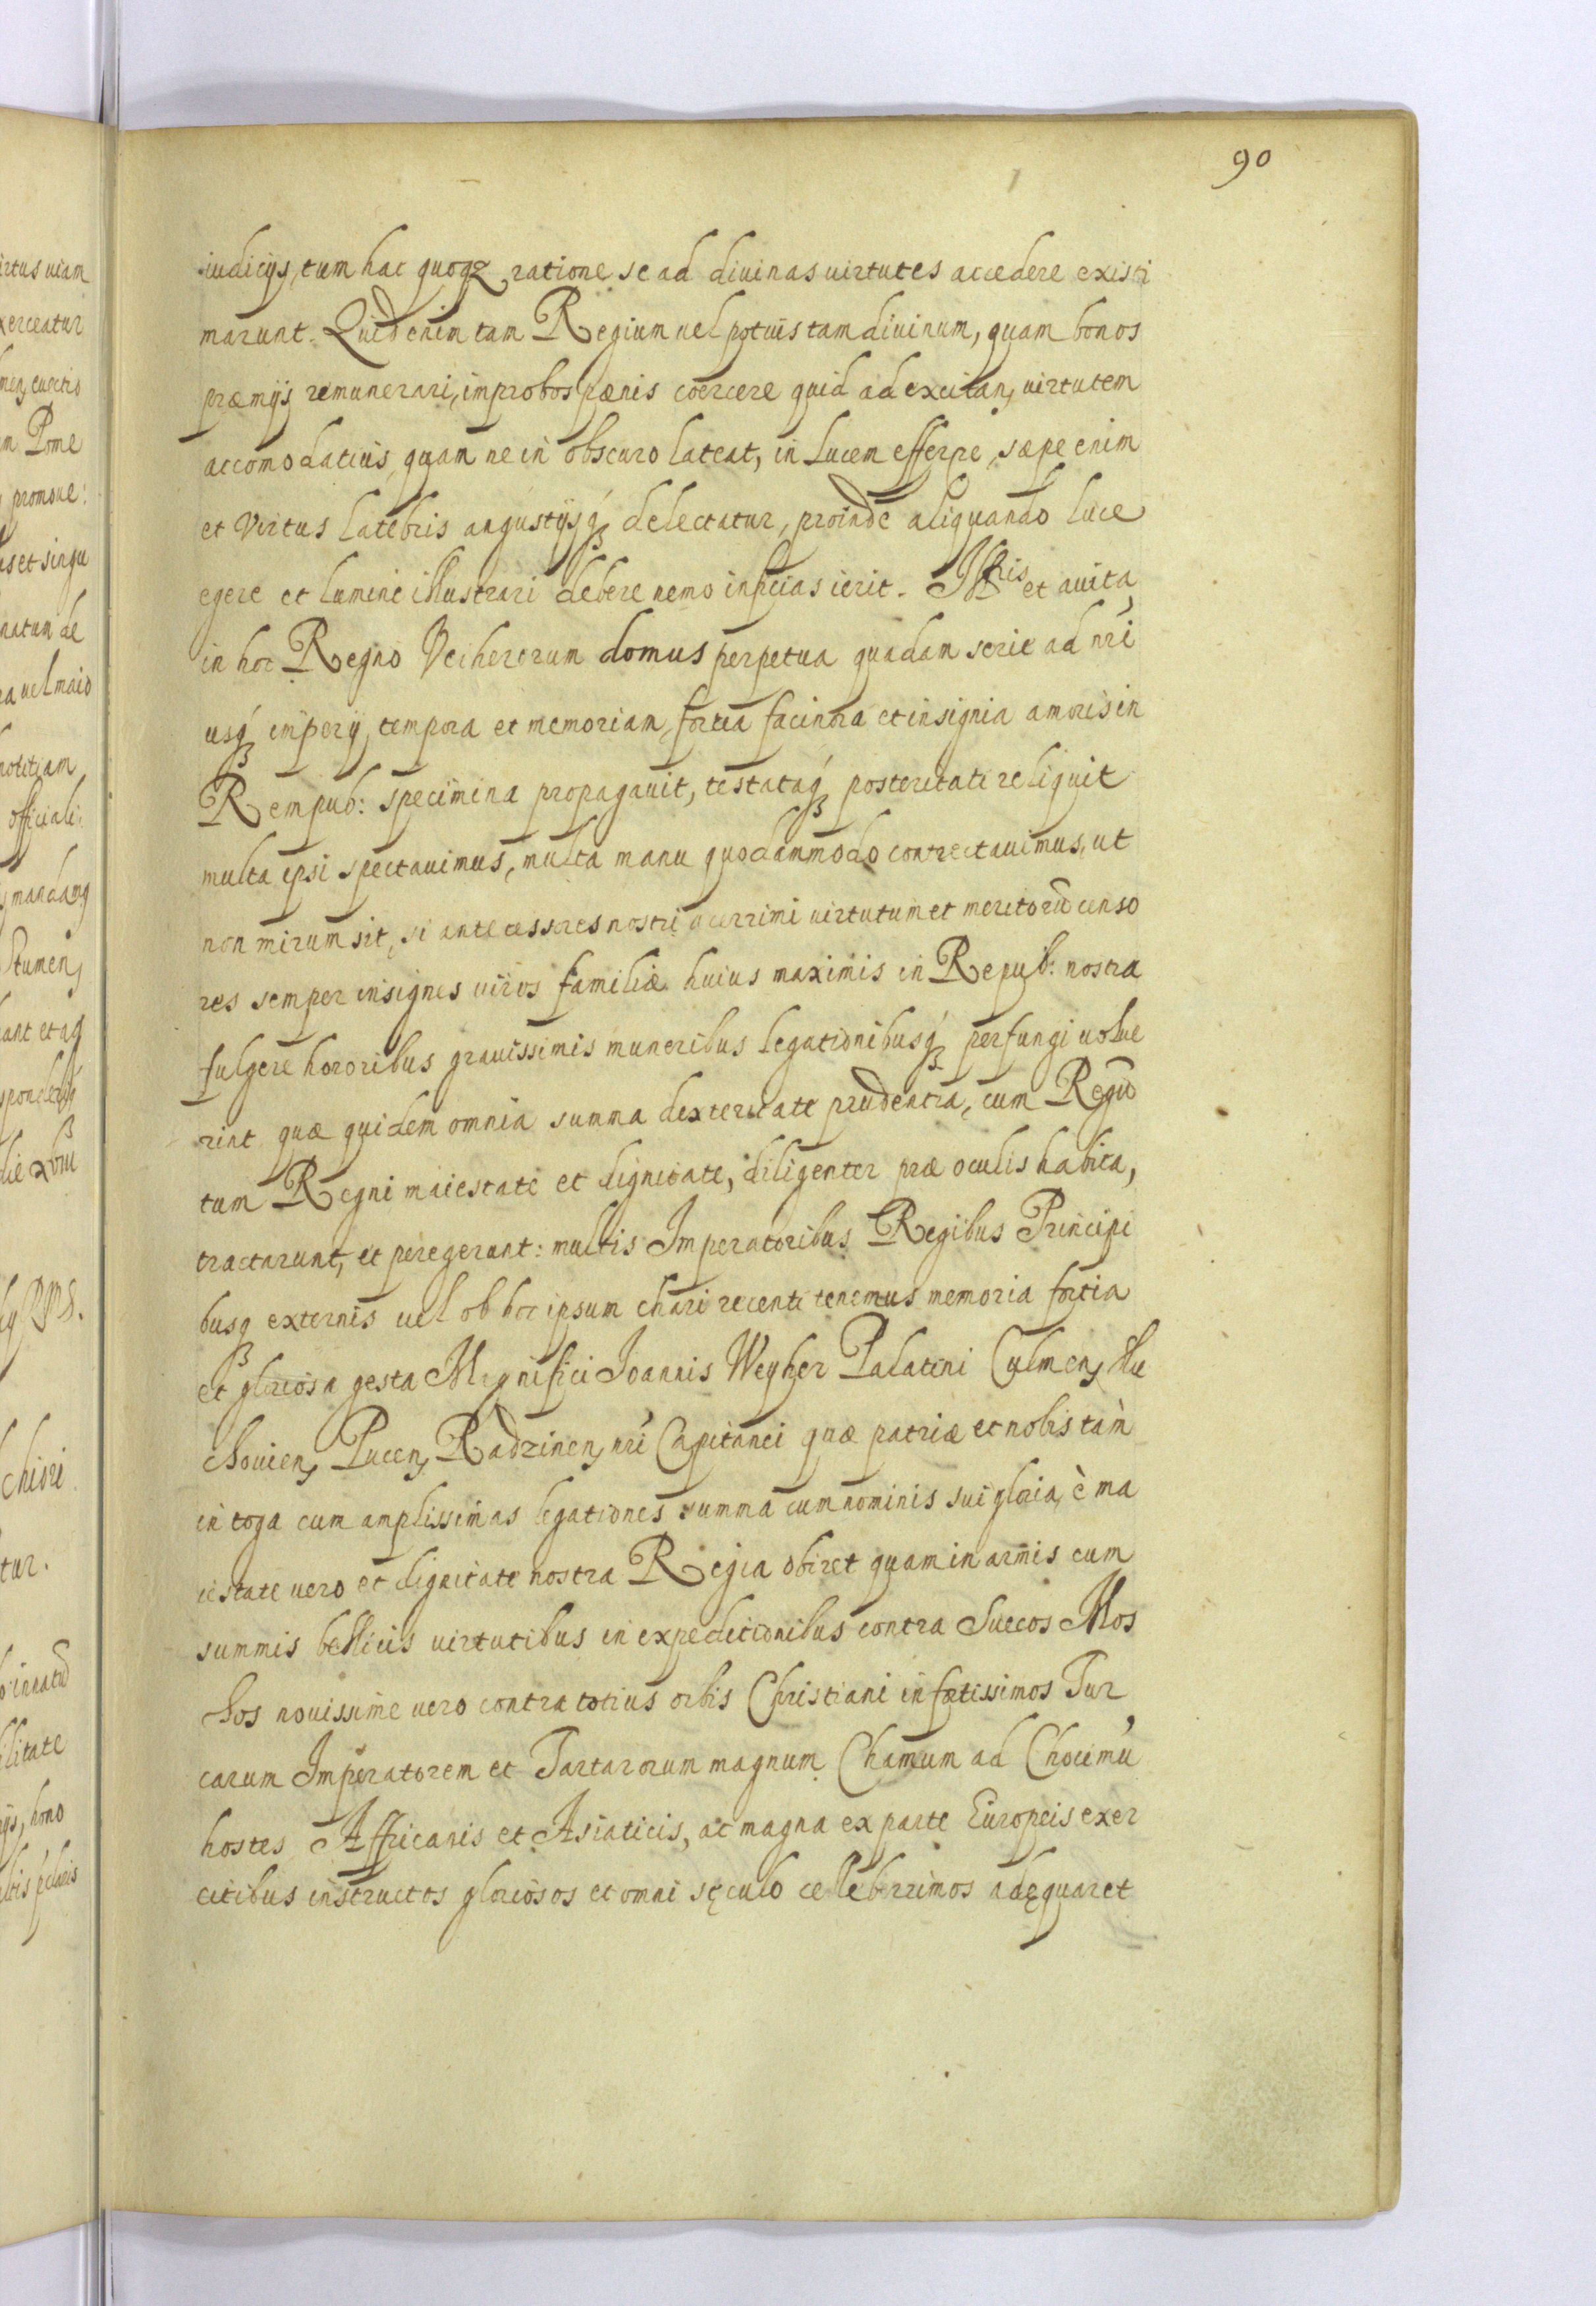 90
iudicijs, tum hac quoqz ratione se ad diuinas uirtutes accedere existi
marunt. Quid enim tam Regium uel potuis tam diuinum, quam bonos
præmijs remunerari, improbos pænis coercere quid ad excitan, uirtutem
accomodatius, quam ne in obscuro lateat, in Lucem efferre, sæpe enim
et Virtus latebris angustijsq́ delectatur, proinde aliquando luce
egere et lumine illustrari debere nemo inficias ierit. Illris et auita,
in hoc Regno Veiherorum domus perpetua quadam serie ad nri
usq́ imperij tempora et memoriam, fortia facinora et insignia amoris in
Rempub: specimina propagauit, testataq́ posteritati reliquit
multa ipsi spectauimus, multa manu quodammodo contrectauimus, ut
non mirum sit, si antecessores nostri acerrimi uirtutum et meritorũ censo
res semper insignes uiros familiæ huius maximis in Repub: nostra
fulgere honoribus grauissimis muneribus legationibusq́ perfungi uolue
rint quæ quidem omnia summa dexteritate prudentia, cum Regũ
tum Regni maiestate et dignitate, diligenter præ oculis habita,
tractarunt, et peregerunt: multis Imperatoribus Regibus Principi
busq externis uel ob hoc ipsum chari recenti tenemus memoria fortia
et gloriosa gesta Magnifici Joannis Weyher Palatini Culmen, Slu
chouien, Pucen, Radzinen, nri Capitanei quæ patriæ et nobis tam
in toga cum amplissimas legationes summa cum nominis sui gloria, è ma
iestate uero et dignitate nostra Regia obiret quam in armis cum
summis bellicis uirtutibus in expeditionibus contra Suecos Mos
chos nouissime uero contra totius orbis Christiani infestissimos Tur
carum Imperatorem et Tartarorum magnum Chamum ad Chocimũ
hostes Affricanis et Asiaticis, ac magna ex parte Europeis exer
citibus instructos gloriosos et omni sęculo celeberrimos adęquaret